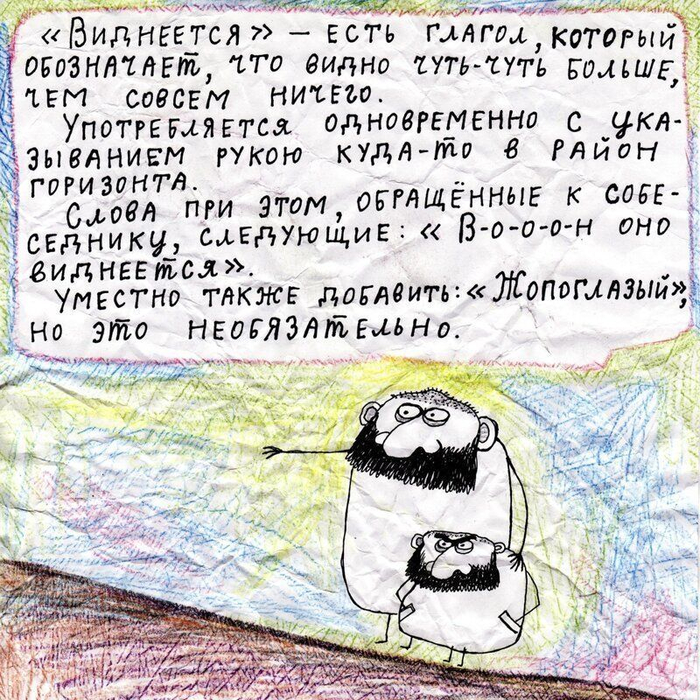 «Виднеется» – есть глагол, который
обозначает, что видно чуть-чуть больше,
чем совсем ничего.
Употребляется одновременно с ука-
зыванием рукою куда-то в район
горизонта.
Слова при этом, обращённые к собе-
седнику, следующие: « В-о-о-о-н оно
виднеется».
Уместно также добавить: «Жопоглазый»,
но это необязательно.